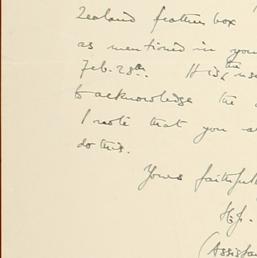 Zealand feather box
as mentioned in you
Feb. 28th. It is the us
to acknowledge the
I note that you a
do this.
Yours faithful
H.J.
(Assista